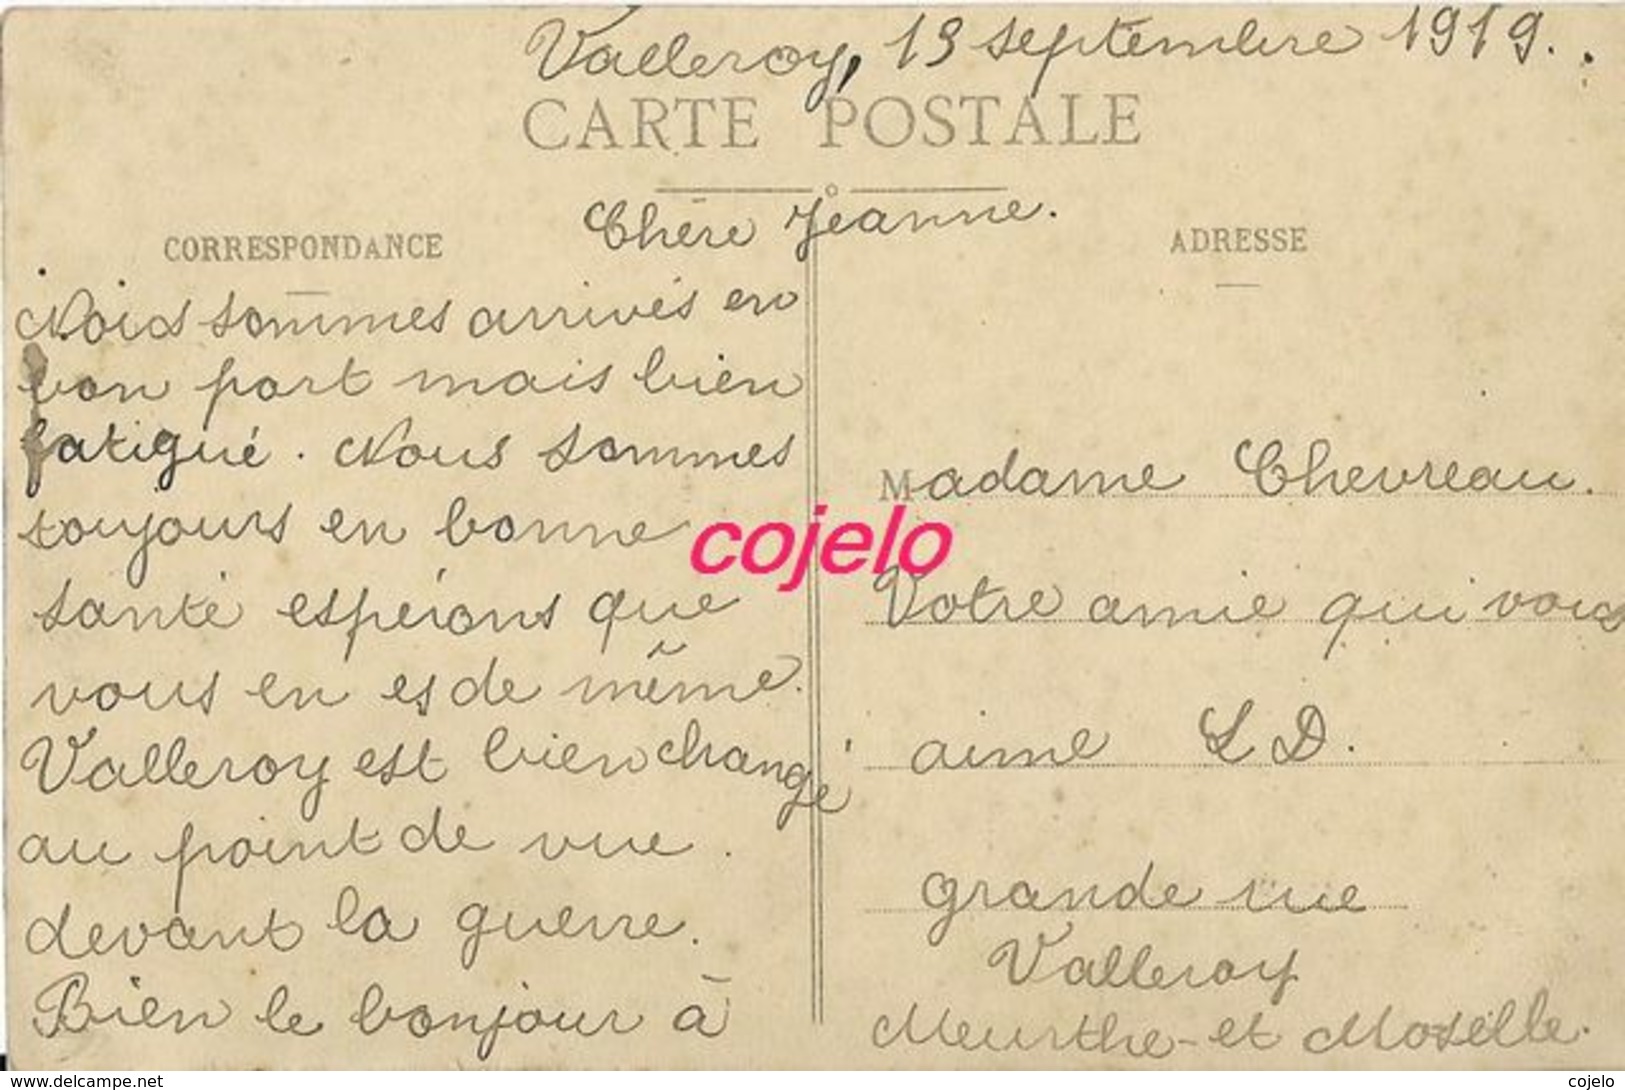 Valleroy, 13 septembre 1919.
CARTE POSTALE
Chère Jeanne.
CORRESPONDANCE
Nous sommes arrivés en
bon port mais bien
fatigué. Nous sommes
toujours en bonne
santé espérons que
vous en es de même.
Valleroy est bien changé
au point de vue.
devant la guerre.
Bien le bonjour à
ADRESSE
Madame Chevreau.
Votre amie qui vous
aime L D.
grande rue
Valleroy
Meurthe-et Moselle.
cojelo
www.delcampe.net
cojelo